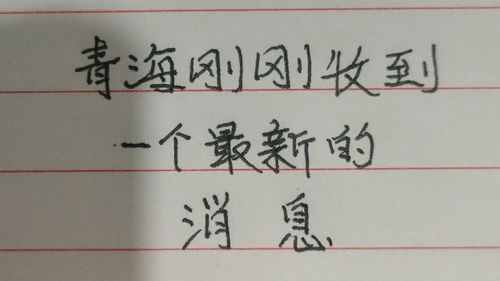 青海刚刚收到
一个最新的
消息